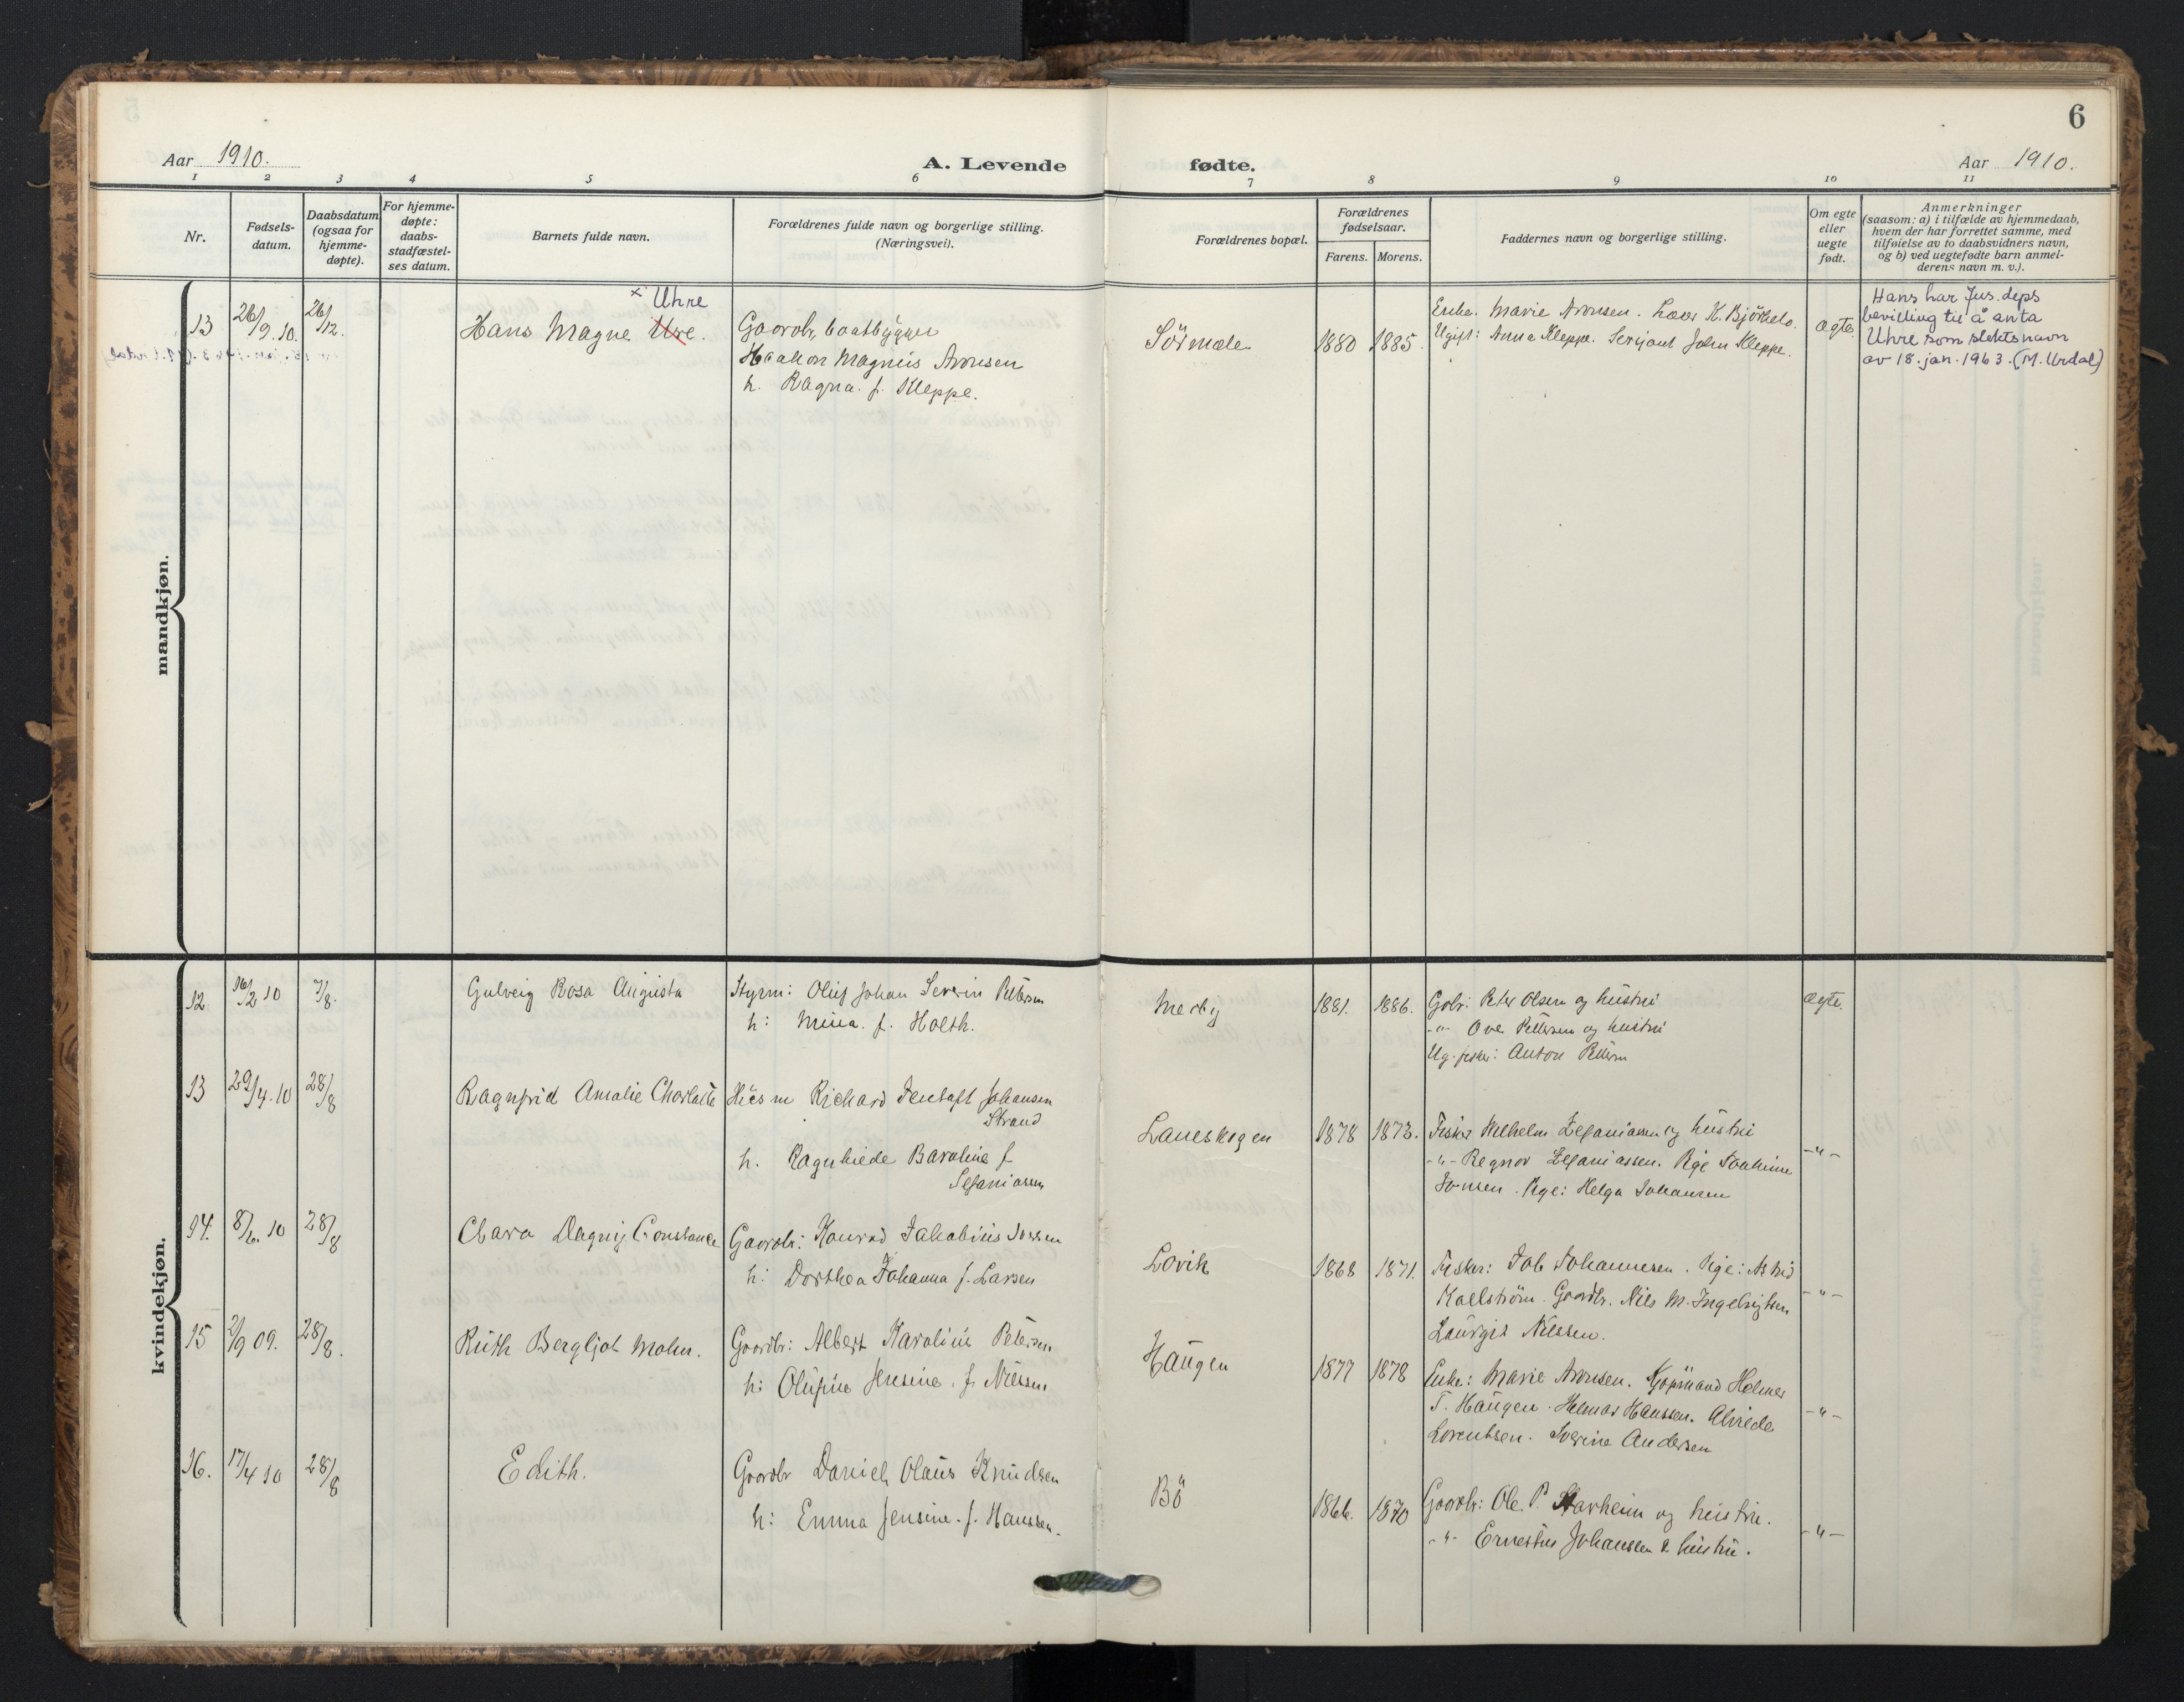 6
Aar 1910.
A. Levende fødte.
Aar 1910.
1 2 3 4 5 6 7 8 9 10 11
Nr.
Fødsels-
datum.
Daabsdatum
(ogsaa for
hjemme-
døpte).
For hjemme-
døpte:
daabs-
stadfæstel-
ses datum.
Barnets fulde navn.
Forældrenes fulde navn og borgerlige stilling.
(Næringsvei).
Forældrenes bopæl.
Forældrenes
fødselsaar.
Farens. Morens.
Faddernes navn og borgerlige stilling.
Om egte
eller
uegte
født.
Anmerkninger
(saasom: a) i tilfælde av hjemmedaab,
hvem der har forrettet samme, med
tilføielse av to daabsvidners navn,
og b) ved uegtefødte barn anmel-
derens navn m. v.).
mandkjøn.
13 26/9. 10. 26/12.
x Uhre
Hans Magne Ure.
Gaardbr, baatbygger
Haakon Magnus Aronsen
h. Ragna. f. Kleppe.
Sörmele 1880 1885.
Enke. Marie Aronsen. Lærer K. Björkelo.
Ugift: Anna Kleppe. Serjant John Kleppe.
Ægte
Hans har Jus. deps
bevilling til å anta
Uhre som slektsnavn
av 18. jan. 1963. (M. Urdal)
kvindekjøn.
12 16/2 10 7/8.
Gulveig Rosa Augusta
Styrm: Oluf Johan Severin Pettersen
h: Mina. f. Holth.
Merby 1881. 1886.
Gbr: Peter Olsen og hustru
-"- Ove Pettersen og hustru
Ug. fisker: Anton Pettersen
Ægte.
13 29/4. 10 28/8
Ragnfrid Amalie Charlotte
Husm Richard Jentoft Johansen
Strand
h. Ragnhilde Baroline f
Sefaniassen
Laneskogen 1878 1873.
Fisker Wilhelm Zefaniassen og hustru
-"- Regnor Zefaniassen. Pige Joakime
Jonsen. Pige: Helga Johansen
-"-
14. 8/6. 10 28/8
Clara Dagny Constance
Gaardbr: Konrad Jakobius Jossen
h: Dorthea Johanna f. Larsen
Lovik 1868 1871.
Fisker: Job Johannesen. Pige: Astrid
Kallström. Gaardbr. Nils M. Ingebrigtsen
Laurgis Nilssen.
-"-
15 2/9 09. 28/8.
Ruth Bergljot Mohn.
Gaardbr: Albert Karolius Petersen
h: Olufine Jensine. f. Nilssen
Haugen 1877 1878
Enke: Marie Aronsen. Kjöpmand Helmer
T. Haugen. Helmar Hanssen. Alvilde
Lorentsen. Sverine Andersen
-"-
16. 17/4 10 28/8
Edith.
Gaardbr Daniel Olaus Knudsen
h: Emma Jensine. f. Hanssen.
Bö 1866. 1870
Gaardbr: Ole P. Starheim og hustru.
-"- Ernestus Johanssen & hustru.
-"-